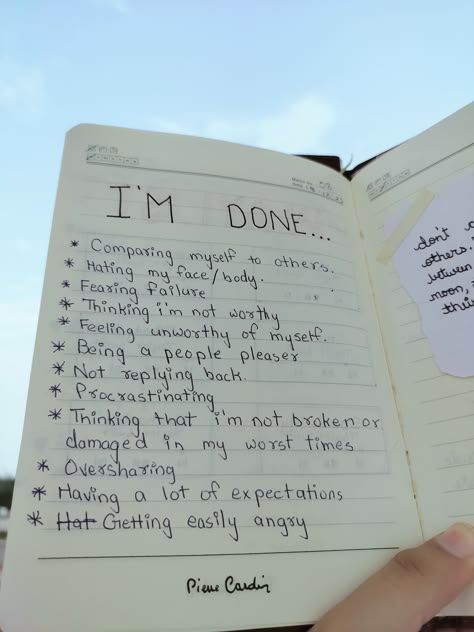 I'M DONE...
* Comparing myself to others.
* Hating my face/body.
* Fearing failure
* Thinking i'm not worthy
* Feeling unworthy of myself.
* Being a people pleaser
* Not replying back.
* Procrastinating
* Thinking that i'm not broken or
damaged in my worst times
* Oversharing
* Having a lot of expectations
* Hat Getting easily angry
Pierre Cardin
don't
others.
between
moon,